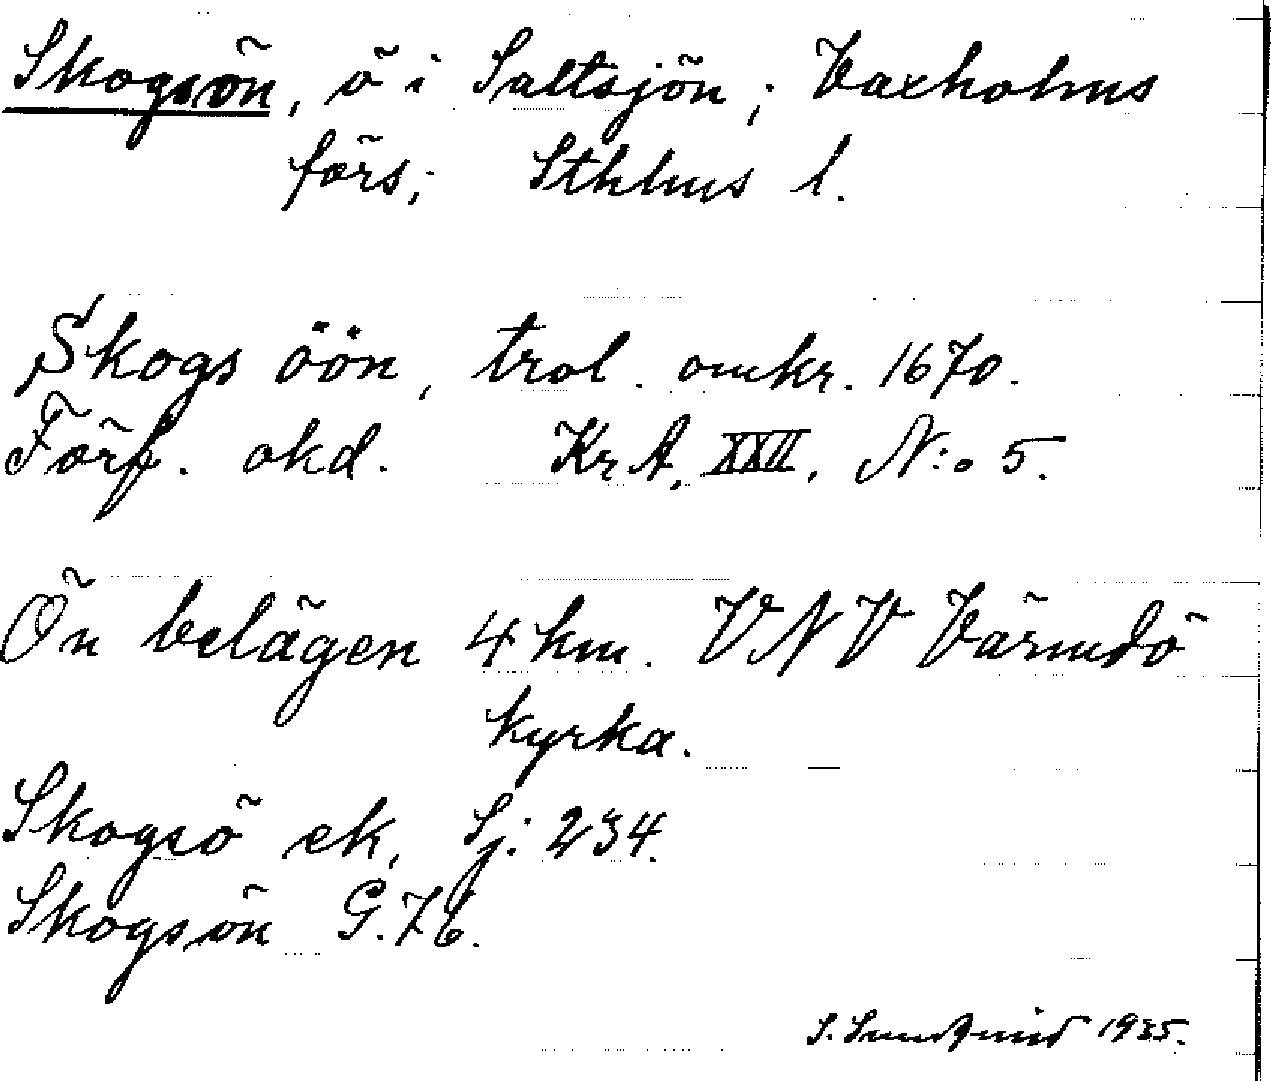 Skogsön, ö i Saltsjön; Vaxholms
förs; Sthlms l.
Skogs öön, trol. omkr. 1670.
Förf. okd. KrA, XXII, N:o 5.
Ön belägen 4 km. VNV Värmdö
kyrka.
Skogsö ek, Sj: 234.
Skogsön G. 76.
S. Sundqvist 1935.